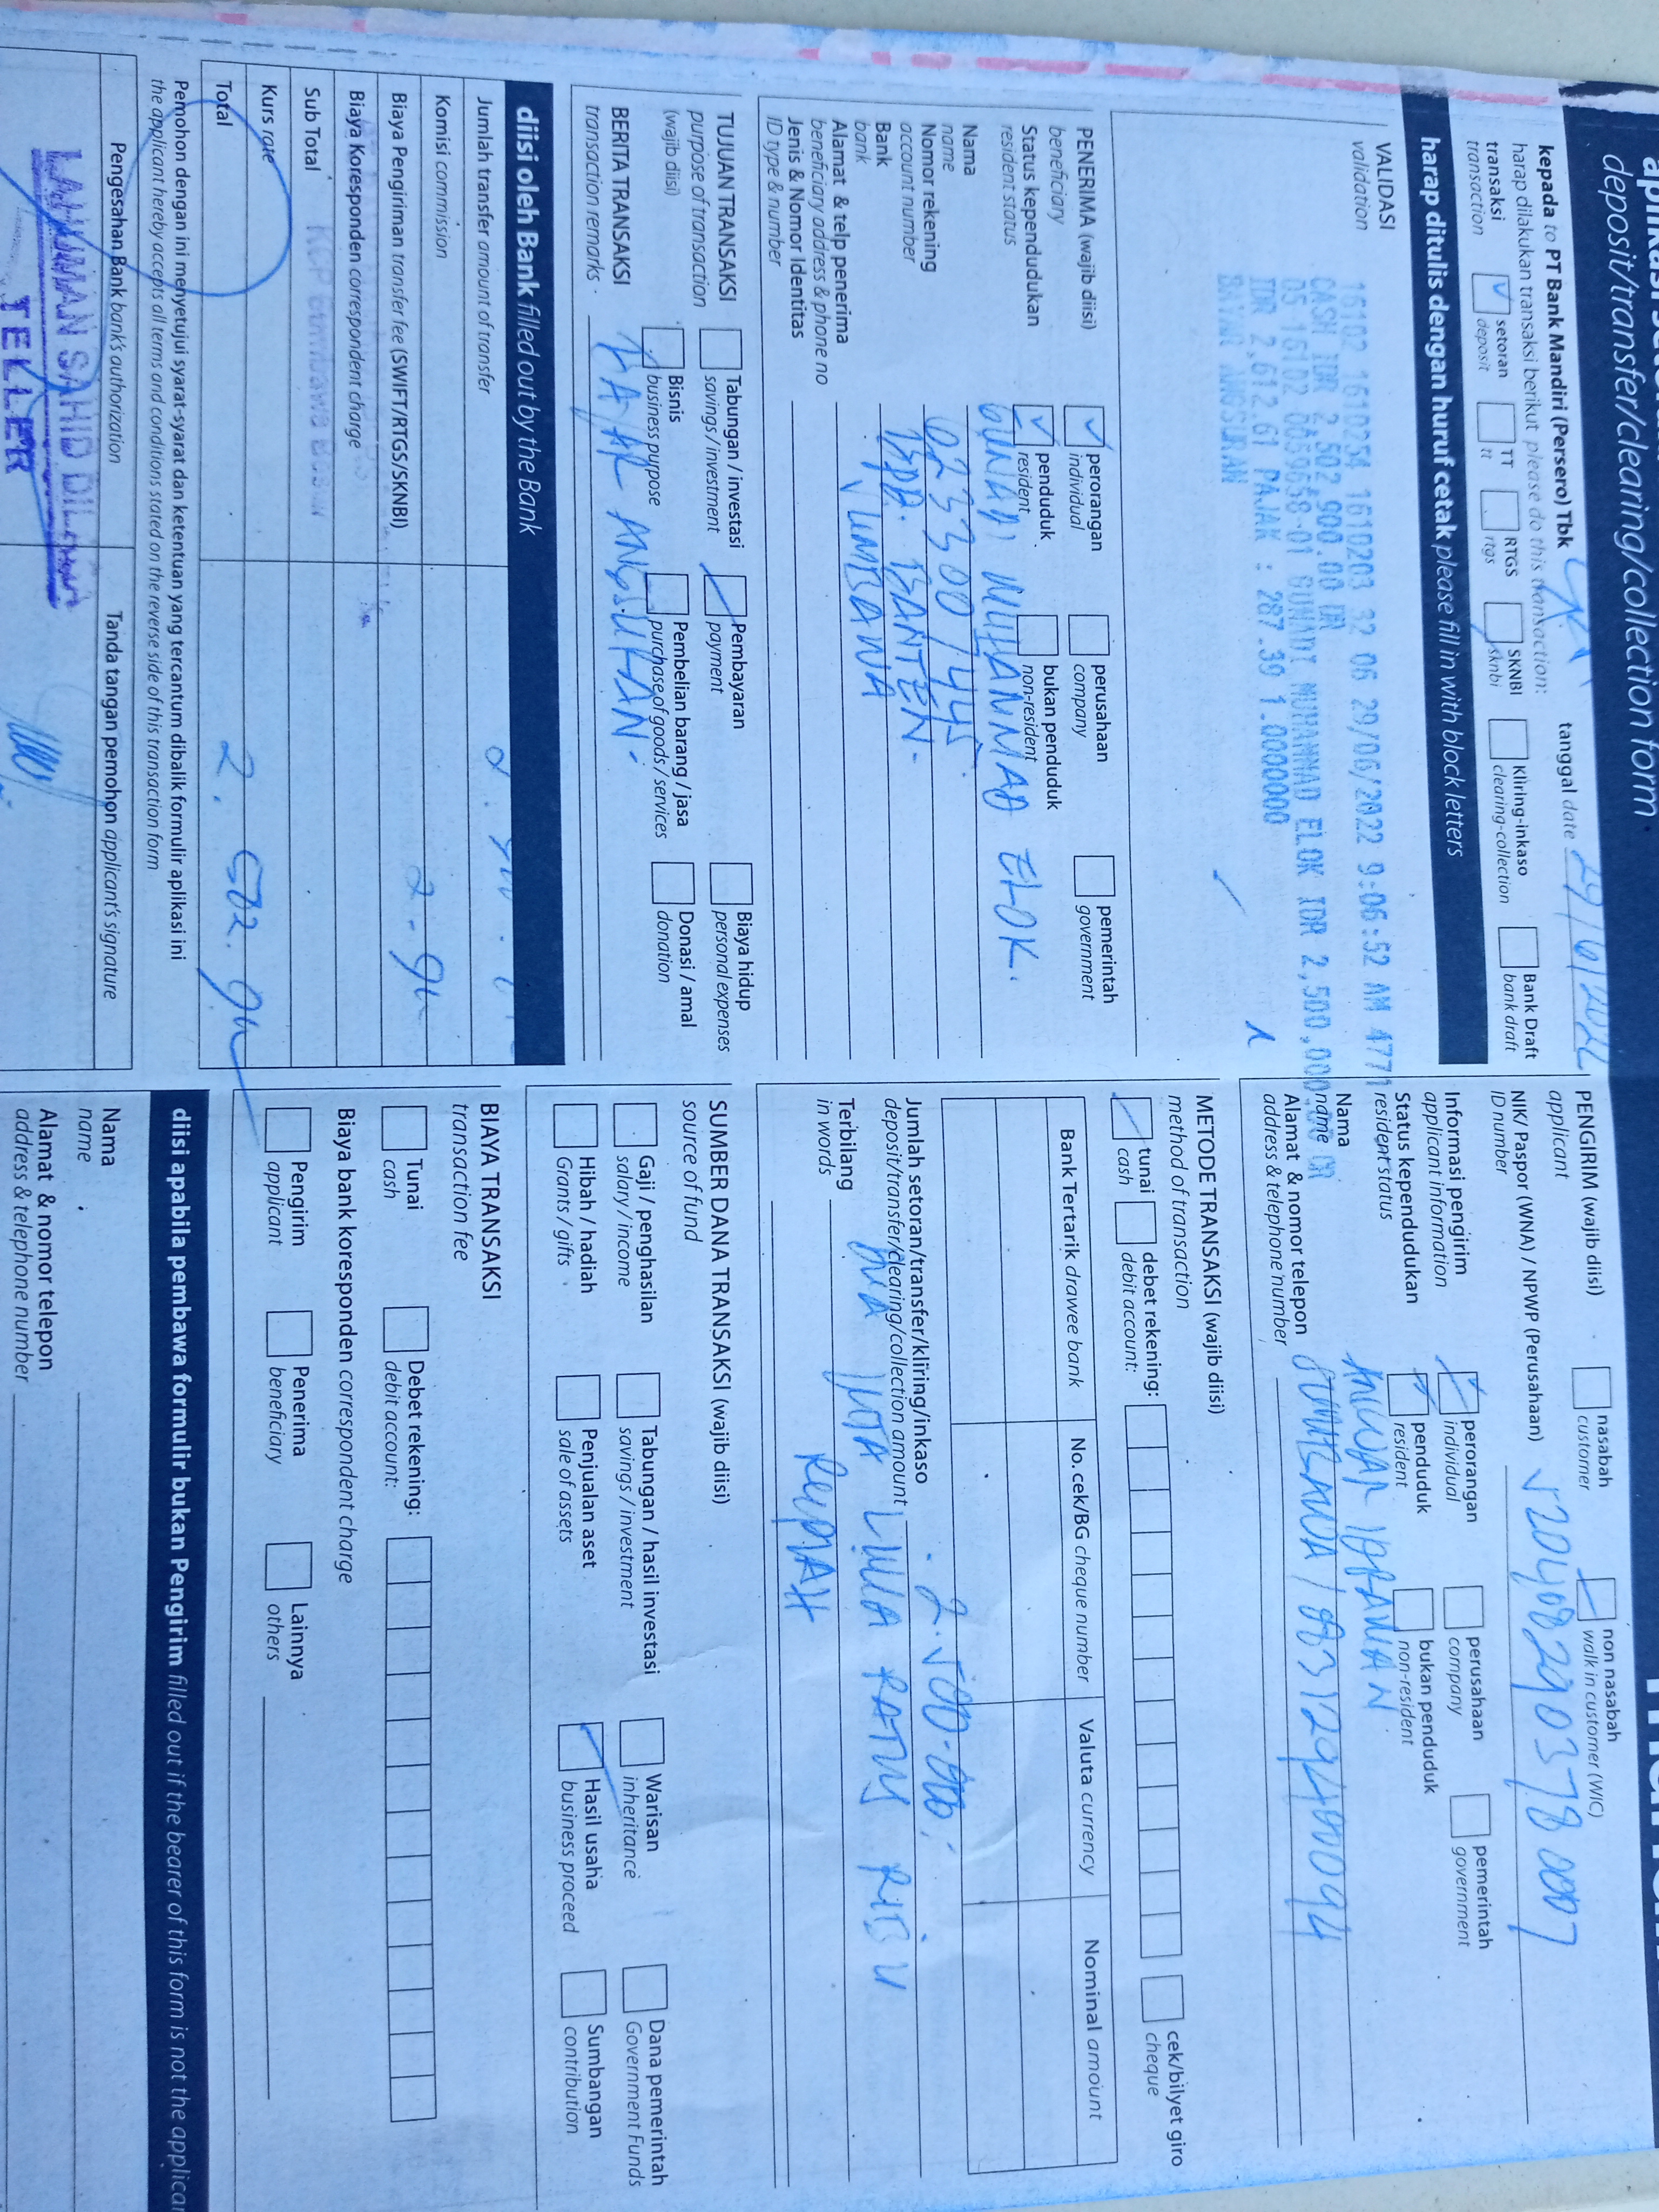 deposit/transfer/clearing/collection form
kepada to PT Bank Mandiri (Persero) Tbk
tanggal date 29/6/2022
harap dilakukan transaksi berikut please do this transaction:
transaksi
transaction
setoran
deposit
TT
tt
RTGS
rtgs
SKNBI
sknbi
Kliring-inkaso
clearing-collection
Bank Draft
bank draft
harap ditulis dengan huruf cetak please fill in with block letters
VALIDASI
validation
16102 1610254 1610203 32 06 29/06/2022 9:06:52 AM 4771
CASH IDR 2,502,900.00 DR
GUNADI MUHAMMAD ELOK IDR 2,500,000.00 CR
IDR 2,612.61 PAJAK : 287.39 1.0000000
BAYAR ANGSURAN
PENERIMA (wajib diisi)
beneficiary
perorangan
individual
perusahaan
company
pemerintah
government
Status kependudukan
resident status
penduduk
resident
bukan penduduk
non-resident
Nama
name
GUNADI MUHAMMAD ELOK.
Nomor rekening
account number
Bank
bank
BPD. BANTEN.
Alamat & telp penerima
beneficiary address & phone no
SUMBAWA
Jenis & Nomor Identitas
ID type & number
TUJUAN TRANSAKSI
purpose of transaction
(wajib diisi)
Tabungan / investasi
savings / investment
Pembayaran
payment
Biaya hidup
personal expenses
Bisnis
business purpose
Pembelian barang / jasa
purchase of goods / services
Donasi / amal
donation
BERITA TRANSAKSI
transaction remarks
BAYAR ANGSURAN.
diisi oleh Bank filled out by the Bank
Jumlah transfer amount of transfer
Komisi commission
Biaya Pengiriman transfer fee (SWIFT/RTGS/SKNBI)
Biaya Koresponden correspondent charge
Sub Total
Kurs rate
Total
Pemohon dengan ini menyetujui syarat-syarat dan ketentuan yang tercantum dibalik formulir aplikasi ini
the applicant hereby accepts all terms and conditions stated on the reverse side of this transaction form
Pengesahan Bank bank's authorization
Tanda tangan pemohon applicant's signature
TELLER
PENGIRIM (wajib diisi)
applicant
nasabah
customer
non nasabah
walk in customer (WIC)
NIK/ Paspor (WNA) / NPWP (Perusahaan)
ID number
5204082903780007
Informasi pengirim
applicant information
perorangan
individual
perusahaan
company
pemerintah
government
Status kependudukan
resident status
penduduk
resident
bukan penduduk
non-resident
Nama
name
Alamat & nomor telepon
address & telephone number
METODE TRANSAKSI (wajib diisi)
method of transaction
tunai
cash
debet rekening:
debit account:
cek/bilyet giro
cheque
Bank Tertarik drawee bank
No. cek/BG cheque number
Valuta currency
Nominal amount
Jumlah setoran/transfer/kliring/inkaso
deposit/transfer/clearing/collection amount
Terbilang
in words
DUA JUTA LIMA RATUS RIBU
RUPIAH
SUMBER DANA TRANSAKSI (wajib diisi)
source of fund
Gaji / penghasilan
salary / income
Tabungan / hasil investasi
savings / investment
Warisan
inheritance
Dana pemerintah
Government Funds
Hibah / hadiah
Grants / gifts
Penjualan aset
sale of assets
Hasil usaha
business proceed
Sumbangan
contribution
BIAYA TRANSAKSI
transaction fee
Tunai
cash
Debet rekening:
debit account:
Biaya bank koresponden correspondent charge
Pengirim
applicant
Penerima
beneficiary
Lainnya
others
diisi apabila pembawa formulir bukan Pengirim filled out if the bearer of this form is not the
Nama
name
Alamat & nomor telepon
address & telephone number